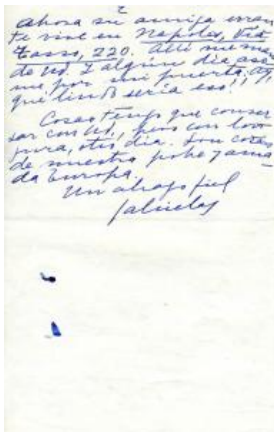 2
ahora su amiga erran
te vive en Napoles, Via
Tasso, 220. Allí me man
de Ud. Y algún día, asó
me, por mi puerta. Ay,
que lindo sería eso!!
Cosas tengo que conver
sar con Ud., pero con lar
gura, otro día. Son cosas
de nuestra pobre y ama
da Europa.
Un abrazo fiel